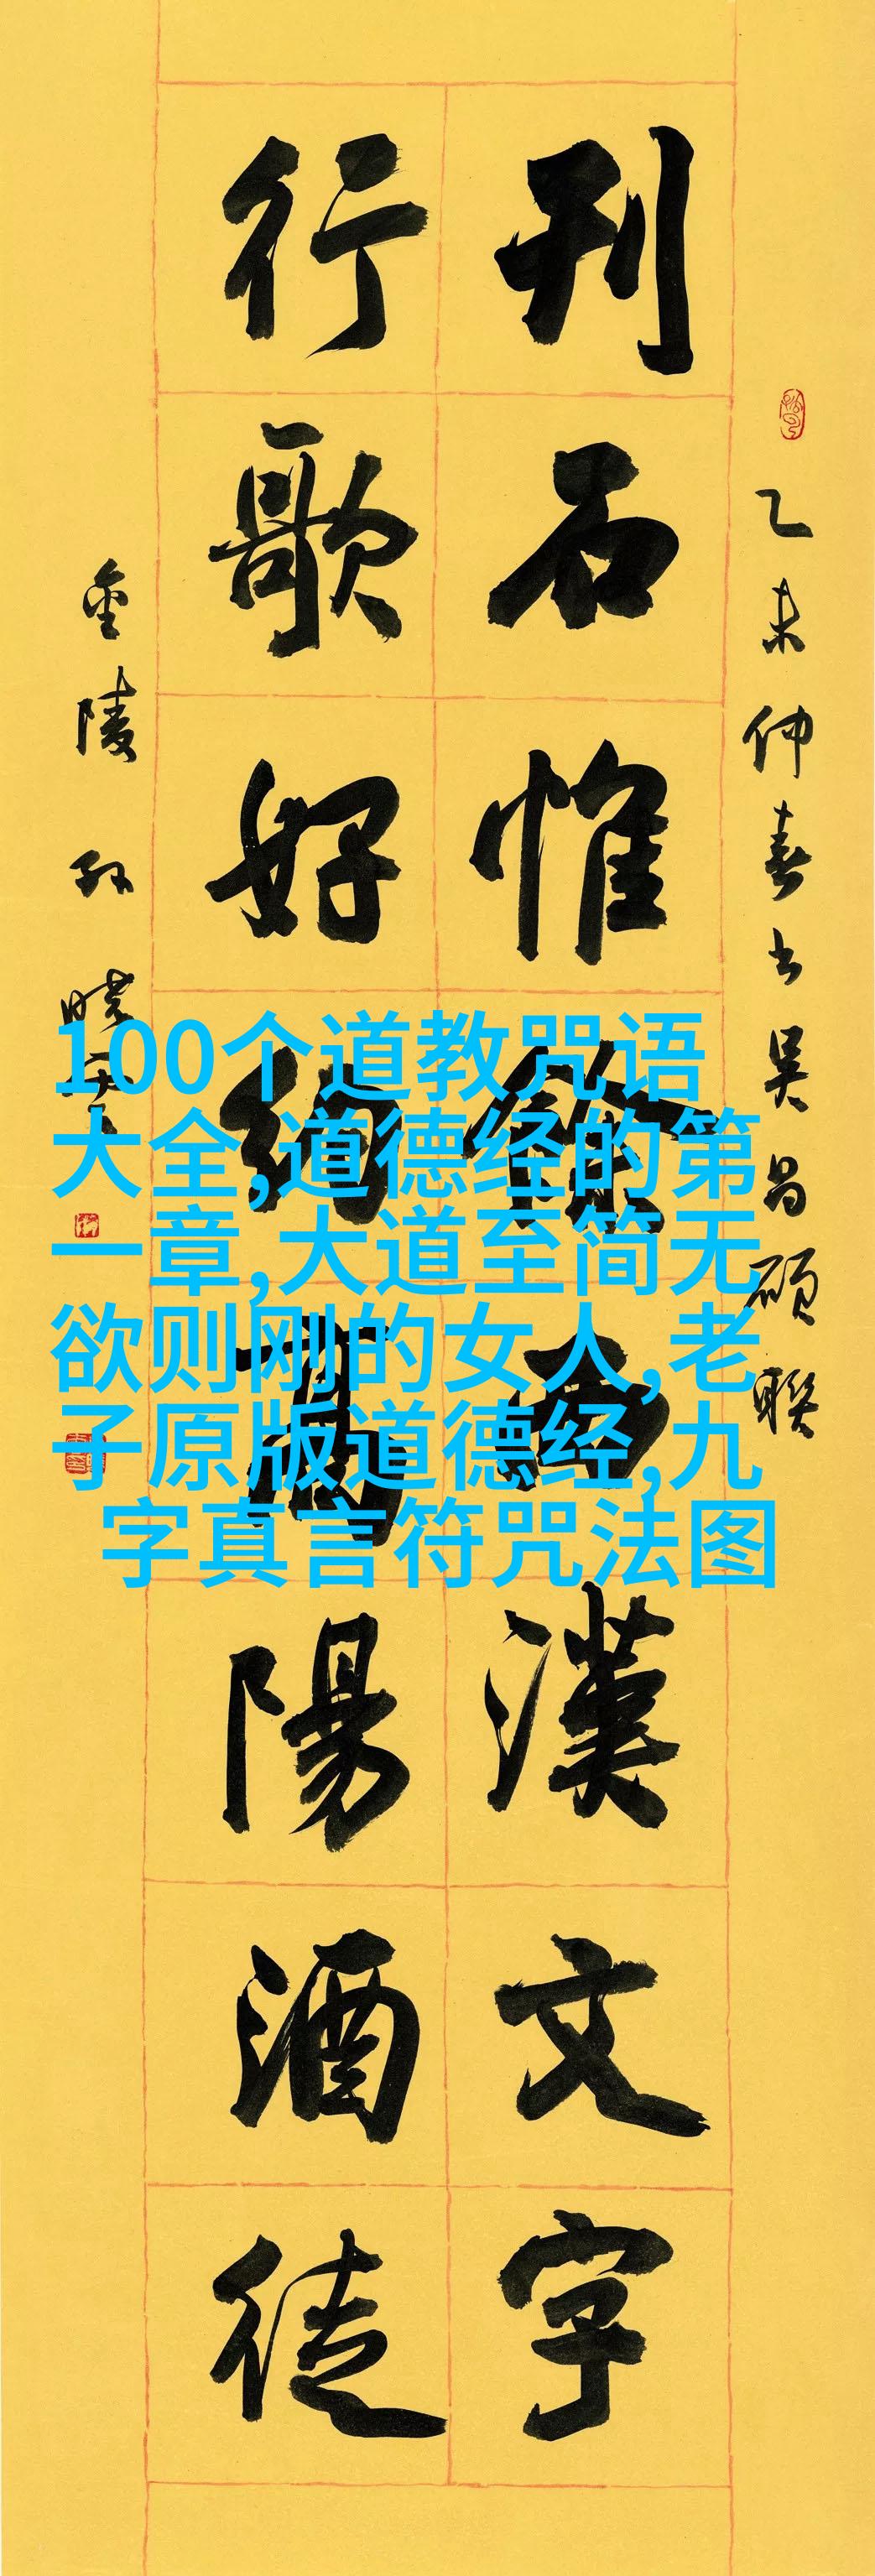 乙未仲春书吳昌碩聯
刊石惟餘西漢文字
行歌好約高陽酒徒
金陵孙曉云
100个道教咒语
大全,道德经的第
一章,大道至简无
欲则刚的女人,老
子原版道德经,九
字真言符咒法图